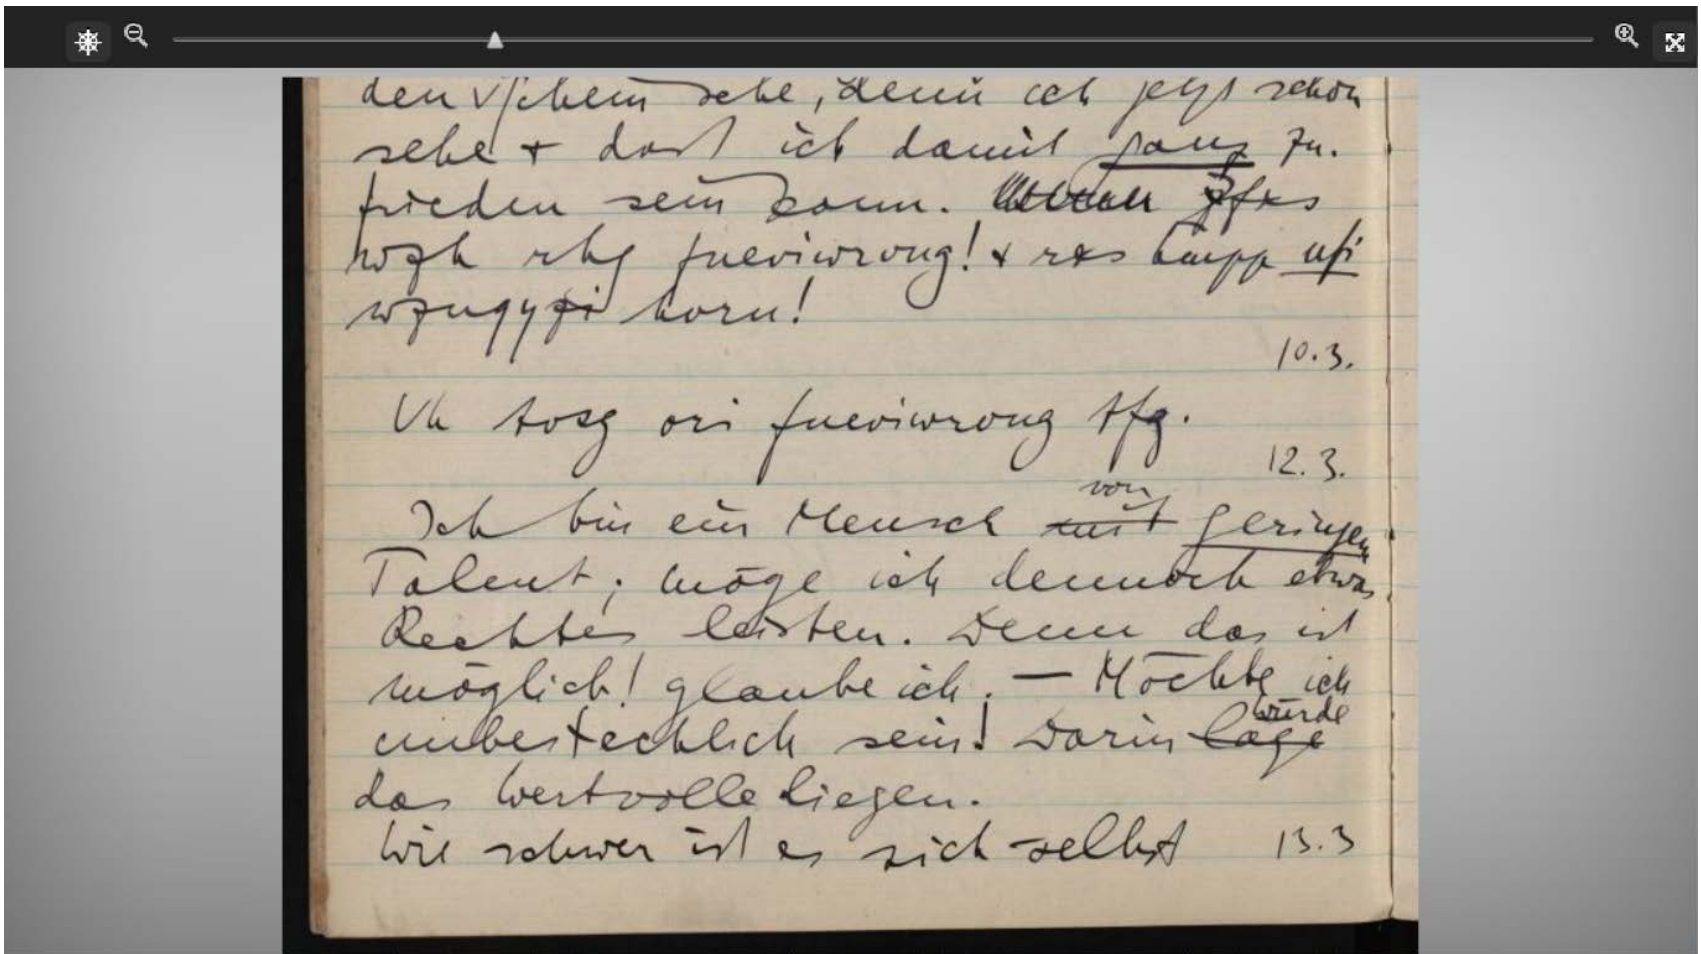 den Schein sehe, den ich jetzt schon
sehe & dass ich damit ganz zu-
frieden sein kann. zfxs
wzh rhg fmeviwrvmg! & rxs mfi
wzmpyzi hvrm!
10.3.
Vh tvsg nri fmeviwrvmg tfg.
12.3.
Ich bin ein Mensch mit von geringem
Talent; möge ich dennoch etwas
Rechtes leisten. Denn das ist
möglich! glaube ich. — Möchte ich
unbestechlich sein! Darin läge würde
das Wertvolle liegen.
Wie schwer ist es sich selbst 13.3